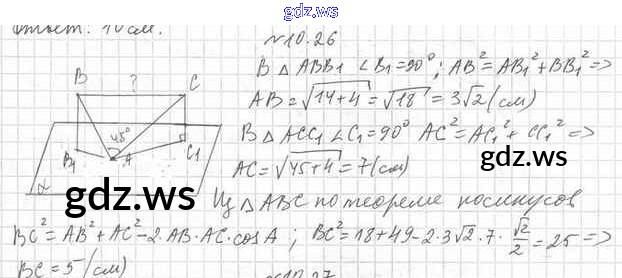 gdz.ws
Ответ: 10 см.
№10.26
B ? C
45°
B₁ A C₁
α
В △ ABB₁ ∠B₁=90°; AB²=AB₁²+BB₁² =>
AB=√14+4=√18=3√2 (см)
В △ ACC₁ ∠C₁=90° AC²=AC₁²+CC₁² =>
AC=√45+4=7(см)
gdz.ws
gdz.ws
Из △ABC по теореме косинусов
BC²=AB²+AC²-2·AB·AC·cosA; BC²=18+49-2·3√2·7·√2/2=25 =>
BC=5(см)
№10.27
gdz.ws